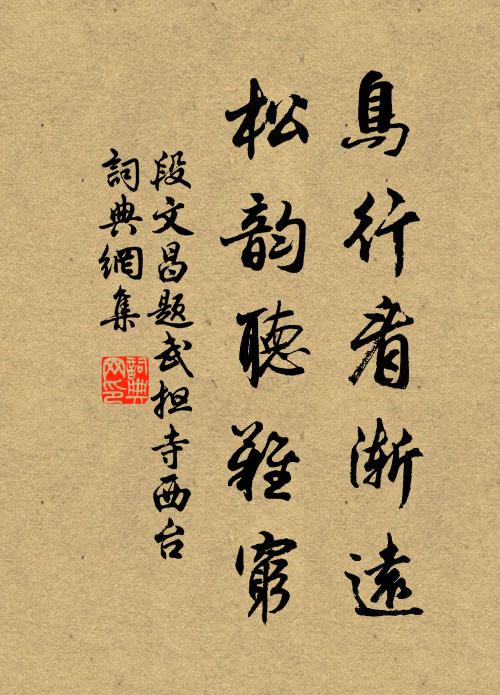 鳥行看漸遠
松韵聽難窮
段文昌题武担寺西台
詞典網集
詞典
网印